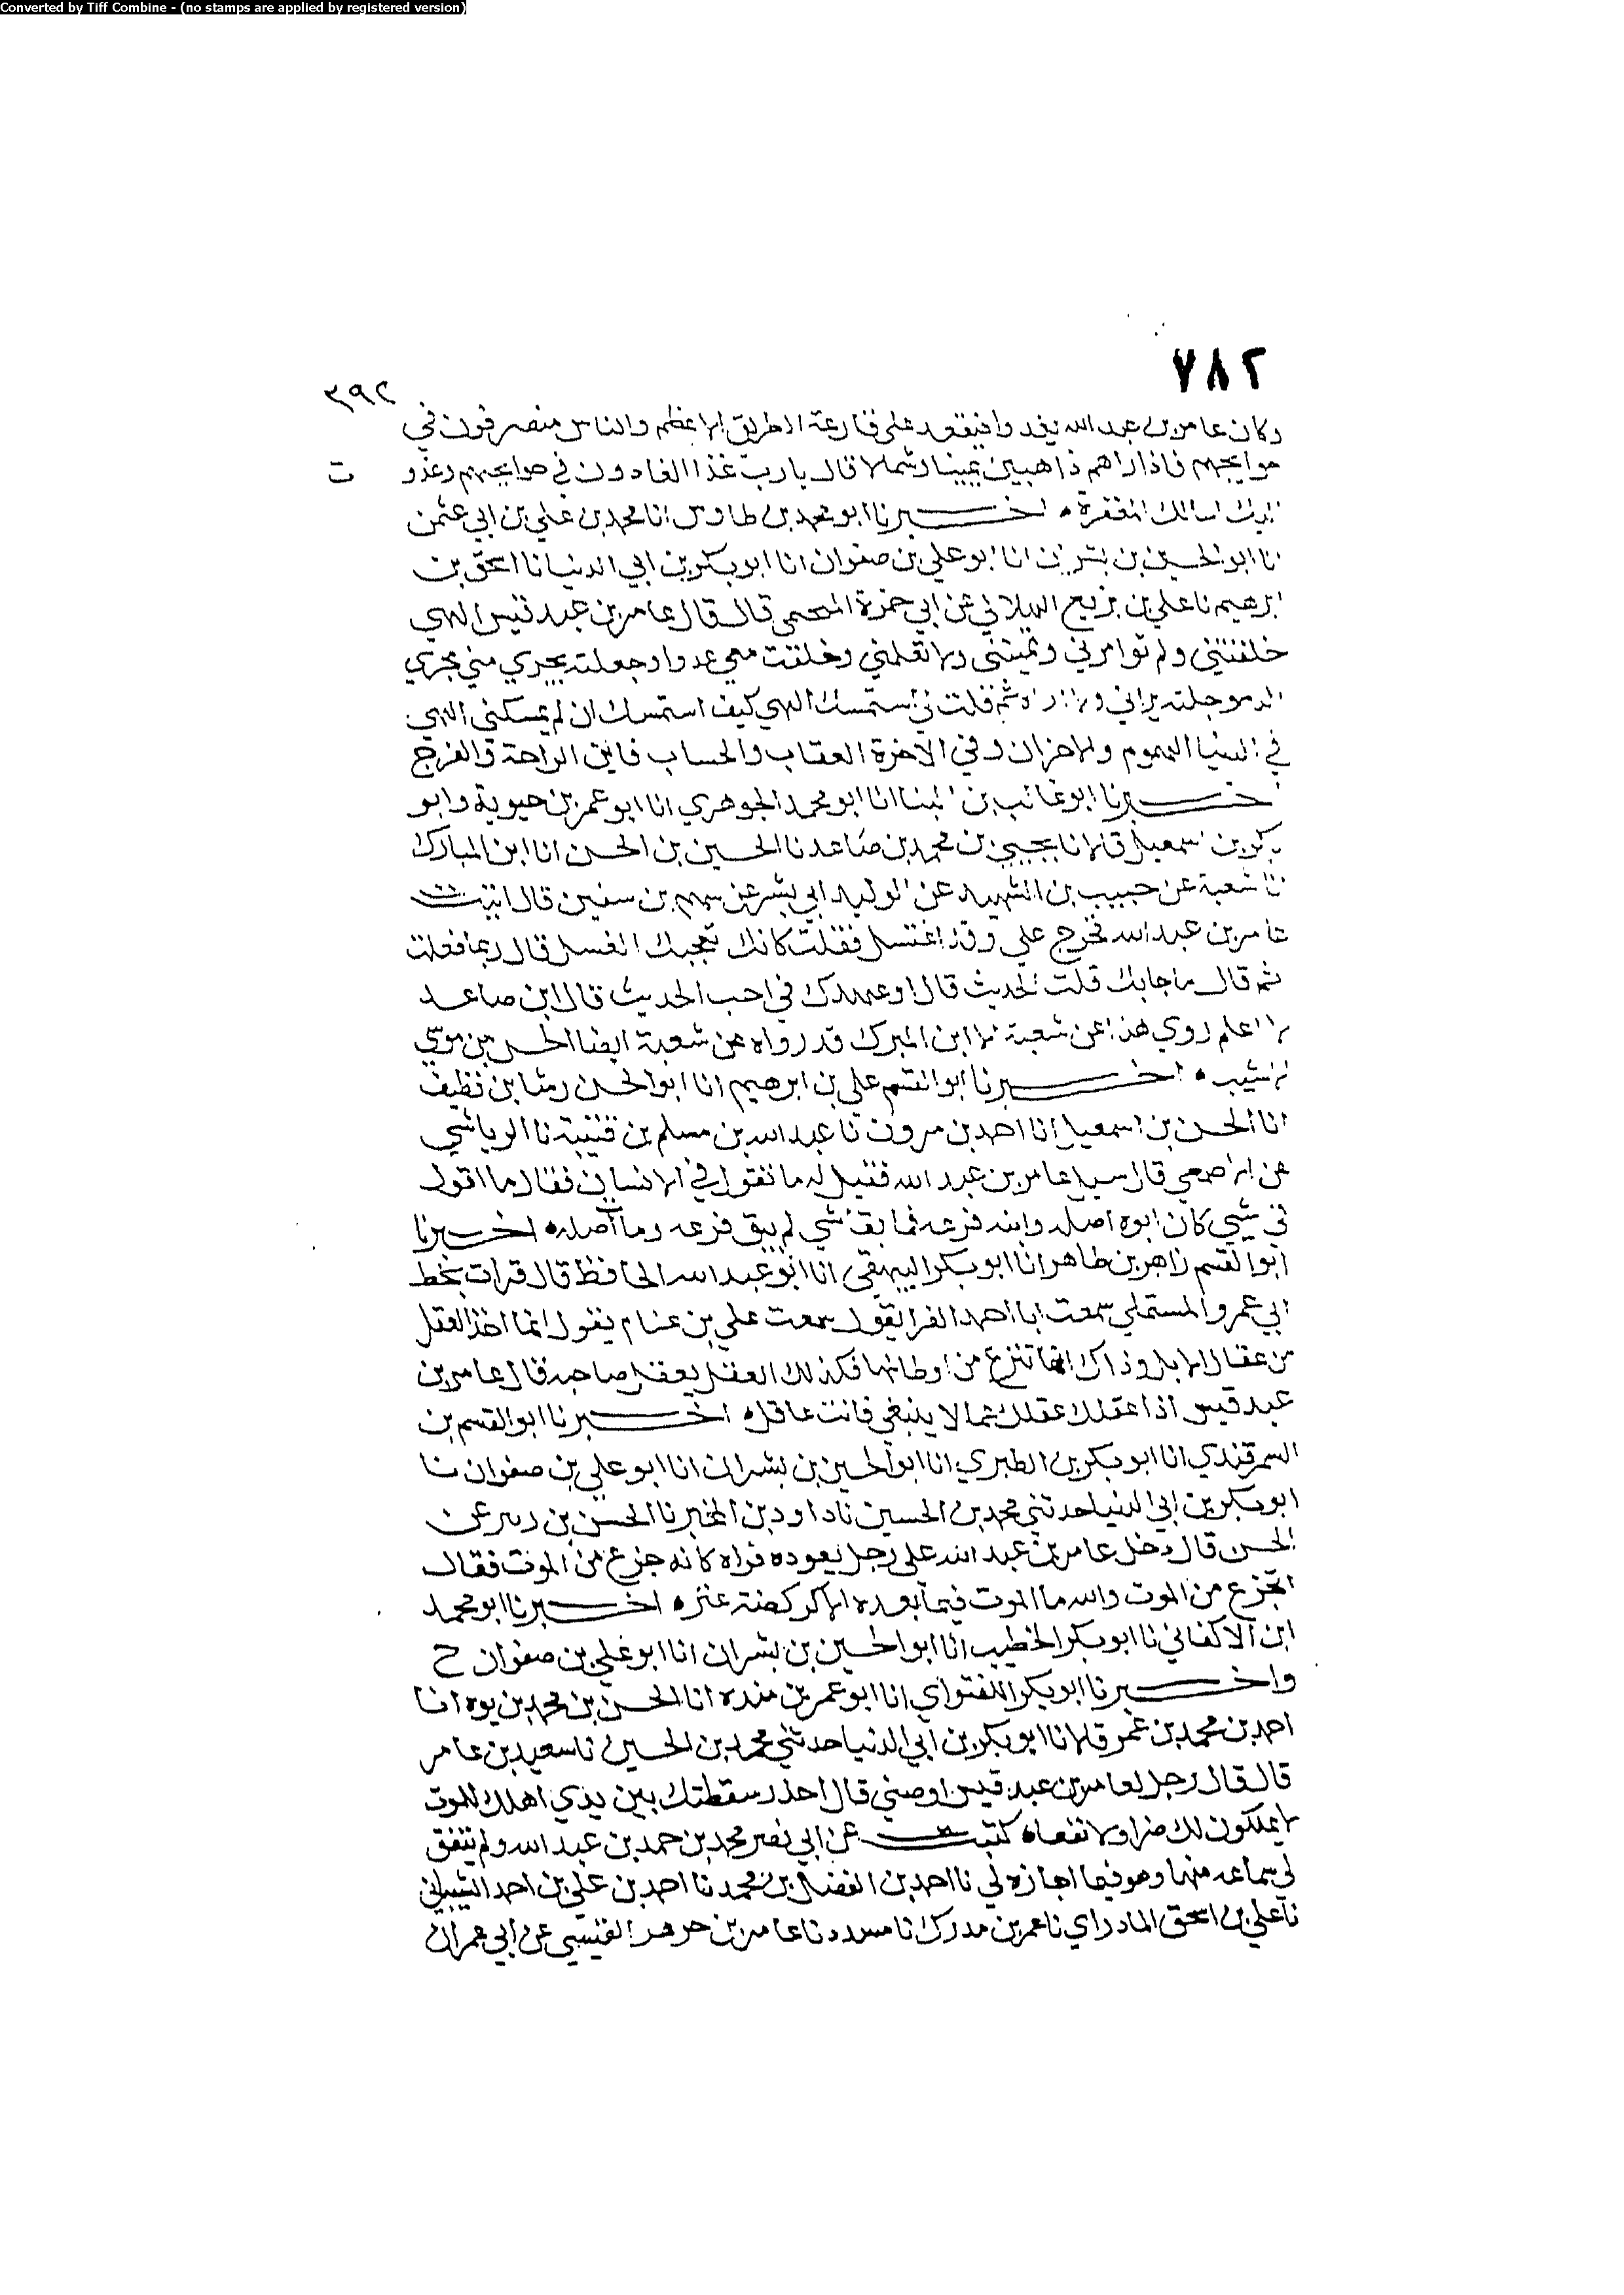 Converted by Tiff Combine - (no stamps are applied by registered version)
٧٨٢
٣٩٢
وكان عامر بن عبد الله يغدوا فيقعد على قارعة الطريق الاعظم والناس منصرفون في
حوايجهم فاذا راهم ذاهبين يمينا وشمالا قال يا رب غدا الغادون في حوايجهم وغدوت
اليك اسالك المغفرة • اخبرنا ابو محمد بن طاوس انا محمد بن علي بن ابي عثمن
انا ابو الحسين بن بشران انا ابو علي بن صفوان انا ابو بكر بن ابي الدنيا نا اسحق بن
ابرهيم نا علي بن بزيع الهلالي عن ابي حمزة قال قال عامر بن عبد قيس الهي
خلقتني ولم توامرني وتميتني ولا تعلمني وخلقت معي عدوا وجعلته يجري مني مجرى
الدم وجعلته يراني ولا اراه ثم قلت لي استمسك الهي كيف استمسك ان لم تمسكني الهي
في الدنيا الهموم والاحزان وفي الاخرة العقاب والحساب فاين الراحة والفرج
اخبرنا ابو غالب بن البنا انا ابو محمد الجوهري انا ابو عمر بن حيوية وابو
بكر بن اسمعيل قالا نا يحيى بن محمد بن صاعد نا الحسين بن الحسن انا ابن المبارك
انا شعبة عن حبيب بن الشهيد عن الوليد ابي بشر عن سهم بن سفين قال اتيت
عامر بن عبد الله فخرج علي وقد اغتسل فقلت كانك يعجبك الغسل قال ربما فعلت
ثم قال ما جا بك قلت الحديث قال اوعهدك في احب الحديث قال ابن صاعد
لا اعلم روى هذا عن شعبة الا ابن المبرك قد رواه عن شعبة ايضا الحسن بن موسى
الاشيب • اخبرنا ابو القسم علي بن ابرهيم انا ابو الحسن رشا بن نظيف
انا الحسن بن اسمعيل انا احمد بن مرون نا عبد الله بن مسلم بن قتيبة نا الرياشي
عن الاصمعي قال سيل عامر بن عبد الله فقيل له ما تقول في الانسان فقال ما اقول
في شي كان ابوه اصله وابنه فرعه فما بقا شي لم يبق فرعه ومات اصله • اخبرنا
ابو القسم زاهر بن طاهر انا ابو بكر البيهقي انا ابو عبد الله الحافظ قال قرات بخط
ابي عمرو المستملي سمعت ابا احمد الفرا يقول سمعت علي بن عثام يقول انما اخذ العقل
من عقال الابل وذاك انها تنزع من اوطانها فكذلك العقل يعقل صاحبه قال عامر بن
عبد قيس اذا عقلك عقلك عما لا ينبغي فانت عاقل • اخبرنا ابو القسم بن
السمرقندي انا ابو بكر بن الطبري انا ابو الحسين بن بشران انا ابو علي بن صفوان نا
ابو بكر بن ابي الدنيا حدثني محمد بن الحسين نا داود بن المحبر نا الحسن بن عن
الحسن قال دخل عامر بن عبد الله على رجل يعوده فراه كانه جزع من الموت فقال
اتجزع من الموت والله ما الموت فيما بعده الا كركضة عنز • اخبرنا ابو محمد
ابن الاكفاني نا ابو بكر الخطيب انا ابو الحسين بن بشران انا ابو علي بن صفوان ح
واخبرنا ابو بكر اللفتواي انا ابو عمر بن منده انا الحسن بن محمد بن يوه انا
احمد بن محمد بن عمر قالا نا ابو بكر بن ابي الدنيا حدثني محمد بن الحسين نا سعيد بن عامر
قال قال رجل لعامر بن عبد قيس اوصني قال احذر سقطتك بين يدي اهلك للموت
لا يملكون لك ضرا ولا نفعا • كتبت عن ابي نصر محمد بن حمد بن عبد الله ولم يتفق
لي سماعه منها وهو فيما اجازه لي نا احمد بن الفضل بن محمد نا احمد بن علي بن احمد الشيباني
نا علي بن اسحق المادراي نا عمر بن مدرك نا مسدد نا عامر بن القيسي عن ابي عمران